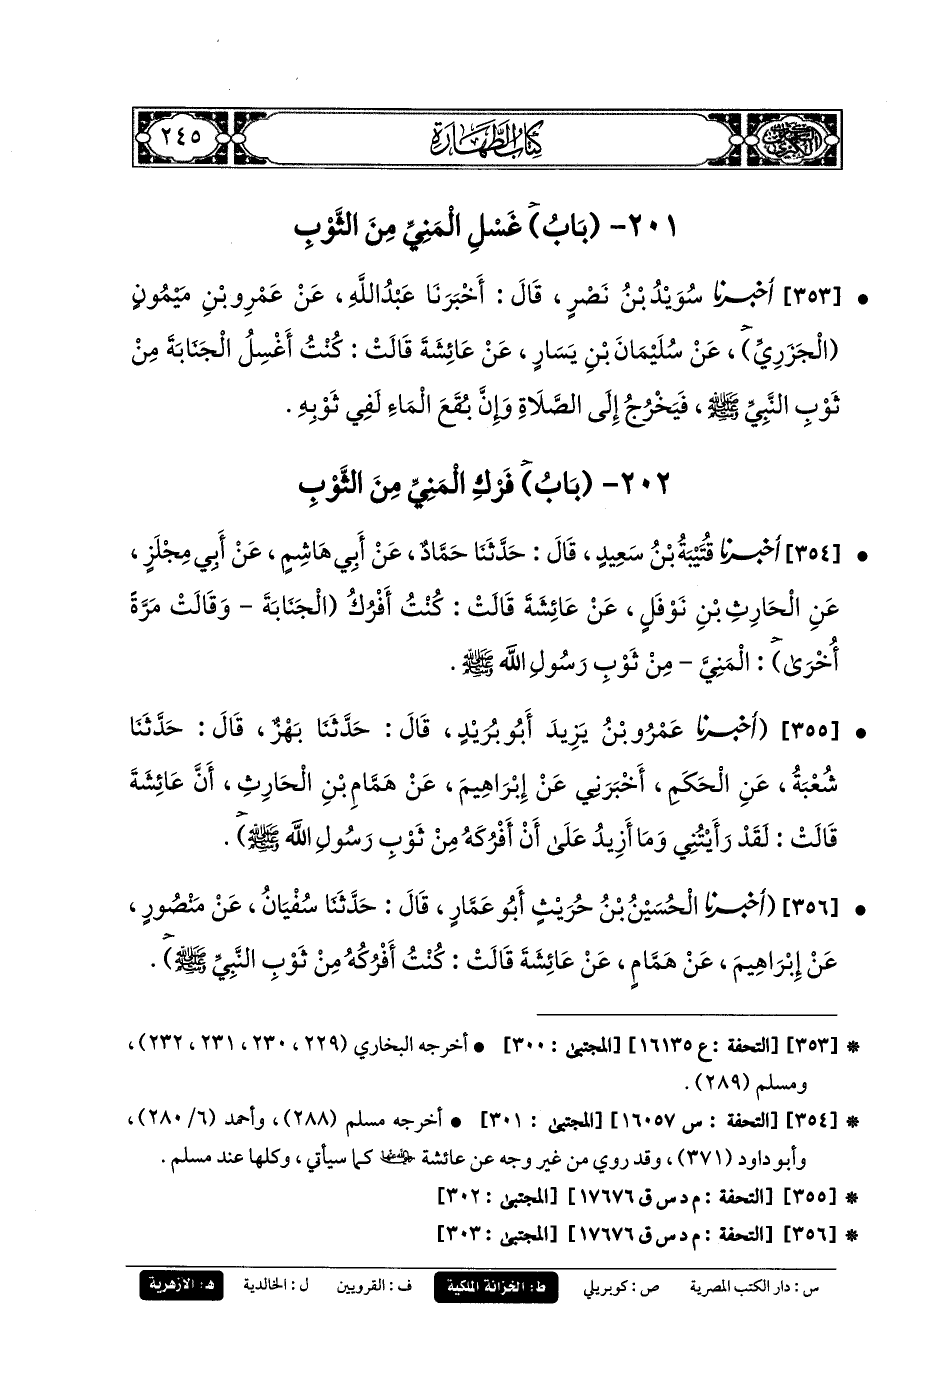 السنن الكبرى كتاب الطهارة ٢٤٥
٢٠١- (بَابُ) غَسْلِ الْمَنِيِّ مِنَ الثَّوْبِ
• [٣٥٣] أَخْبَرَنَا سُوَيْدُ بْنُ نَصْرٍ، قَالَ: أَخْبَرَنَا عَبْدُاللَّهِ، عَنْ عَمْرِو بْنِ مَيْمُونٍ
(الْجَزَرِيِّ)، عَنْ سُلَيْمَانَ بْنِ يَسَارٍ، عَنْ عَائِشَةَ قَالَتْ: كُنْتُ أَغْسِلُ الْجَنَابَةَ مِنْ
ثَوْبِ النَّبِيِّ ﷺ، فَيَخْرُجُ إِلَى الصَّلَاةِ وَإِنَّ بُقَعَ الْمَاءِ لَفِي ثَوْبِهِ.
٢٠٢- (بَابُ) فَرْكِ الْمَنِيِّ مِنَ الثَّوْبِ
• [٣٥٤] أَخْبَرَنَا قُتَيْبَةُ بْنُ سَعِيدٍ، قَالَ: حَدَّثَنَا حَمَّادٌ، عَنْ أَبِي هَاشِمٍ، عَنْ أَبِي مِجْلَزٍ،
عَنِ الْحَارِثِ بْنِ نَوْفَلٍ، عَنْ عَائِشَةَ قَالَتْ: كُنْتُ أَفْرُكُ (الْجَنَابَةَ - وَقَالَتْ مَرَّةً
أُخْرَىٰ): الْمَنِيَّ - مِنْ ثَوْبِ رَسُولِ اللَّه ﷺ.
• [٣٥٥] (أَخْبَرَنَا عَمْرُو بْنُ يَزِيدَ أَبُو بُرَيْدٍ، قَالَ: حَدَّثَنَا بَهْزٌ، قَالَ: حَدَّثَنَا
شُعْبَةُ، عَنِ الْحَكَمِ، أَخْبَرَنِي عَنْ إِبْرَاهِيمَ، عَنْ هَمَّامِ بْنِ الْحَارِثِ، أَنَّ عَائِشَةَ
قَالَتْ: لَقَدْ رَأَيْتُنِي وَمَا أَزِيدُ عَلَىٰ أَنْ أَفْرُكَهُ مِنْ ثَوْبِ رَسُولِ اللَّه ﷺ).
• [٣٥٦] (أَخْبَرَنَا الْحُسَيْنُ بْنُ حُرَيْثٍ أَبُو عَمَّارٍ، قَالَ: حَدَّثَنَا سُفْيَانُ، عَنْ مَنْصُورٍ،
عَنْ إِبْرَاهِيمَ، عَنْ هَمَّامٍ، عَنْ عَائِشَةَ قَالَتْ: كُنْتُ أَفْرُكُهُ مِنْ ثَوْبِ النَّبِيِّ ﷺ).
* [٣٥٣] [التحفة: ع ١٦١٣٥] [المجتبىٰ: ٣٠٠] • أخرجه البخاري (٢٢٩، ٢٣٠، ٢٣١، ٢٣٢)،
ومسلم (٢٨٩).
* [٣٥٤] [التحفة: س ١٦٠٥٧] [المجتبىٰ: ٣٠١] • أخرجه مسلم (٢٨٨)، وأحمد (٦/ ٢٨٠)،
وأبو داود (٣٧١)، وقد روي من غير وجه عن عائشة رضي الله عنها كما سيأتي، وكلها عند مسلم.
* [٣٥٥] [التحفة: م د س ق ١٧٦٧٦] [المجتبىٰ: ٣٠٢]
* [٣٥٦] [التحفة: م د س ق ١٧٦٧٦] [المجتبىٰ: ٣٠٣]
س: دار الكتب المصرية ص: كوبريلي ط: الخزانة الملكية ف: القرويين ل: الخالدية هـ: الأزهرية